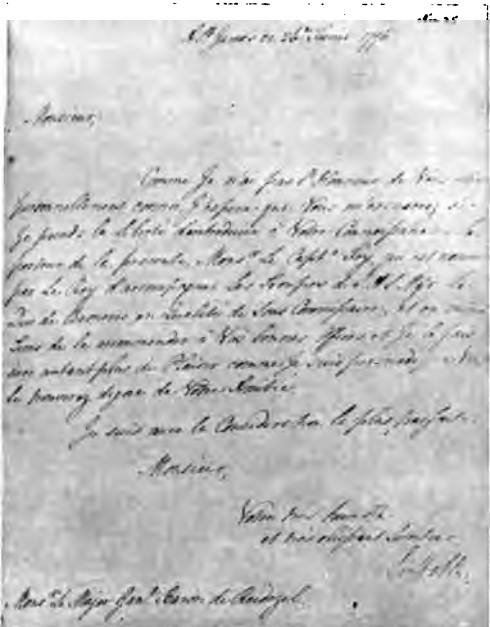 St James ce 26e Fevrier 1776
Monsieur,
Comme Je n'ai pas l'Honneur de Vous être
personnellement connu, J'espere que Vous m'excuserez si
Je prends la liberté d'introduire à Votre Connoissance le
porteur de la presente, Monsr. Le Captn. Foy, qui est nommé
par Le Roy d'accompagner les Troupes de S. A. S. Mgr. Le
Duc de Brunswic en qualité de Sous Commissaire,
de le recommander à Vos bonnes Offices et Je le fais
avec autant plus de Plaisir comme Je suis persuadé
le trouverez digne de Votre
Je suis avec la Consideration la plus parfaite
Monsieur,
Votre très humble
et très obéissant Serviteur
Suffolk.
Monsr. Le Major Genl. Baron de Riedesel.